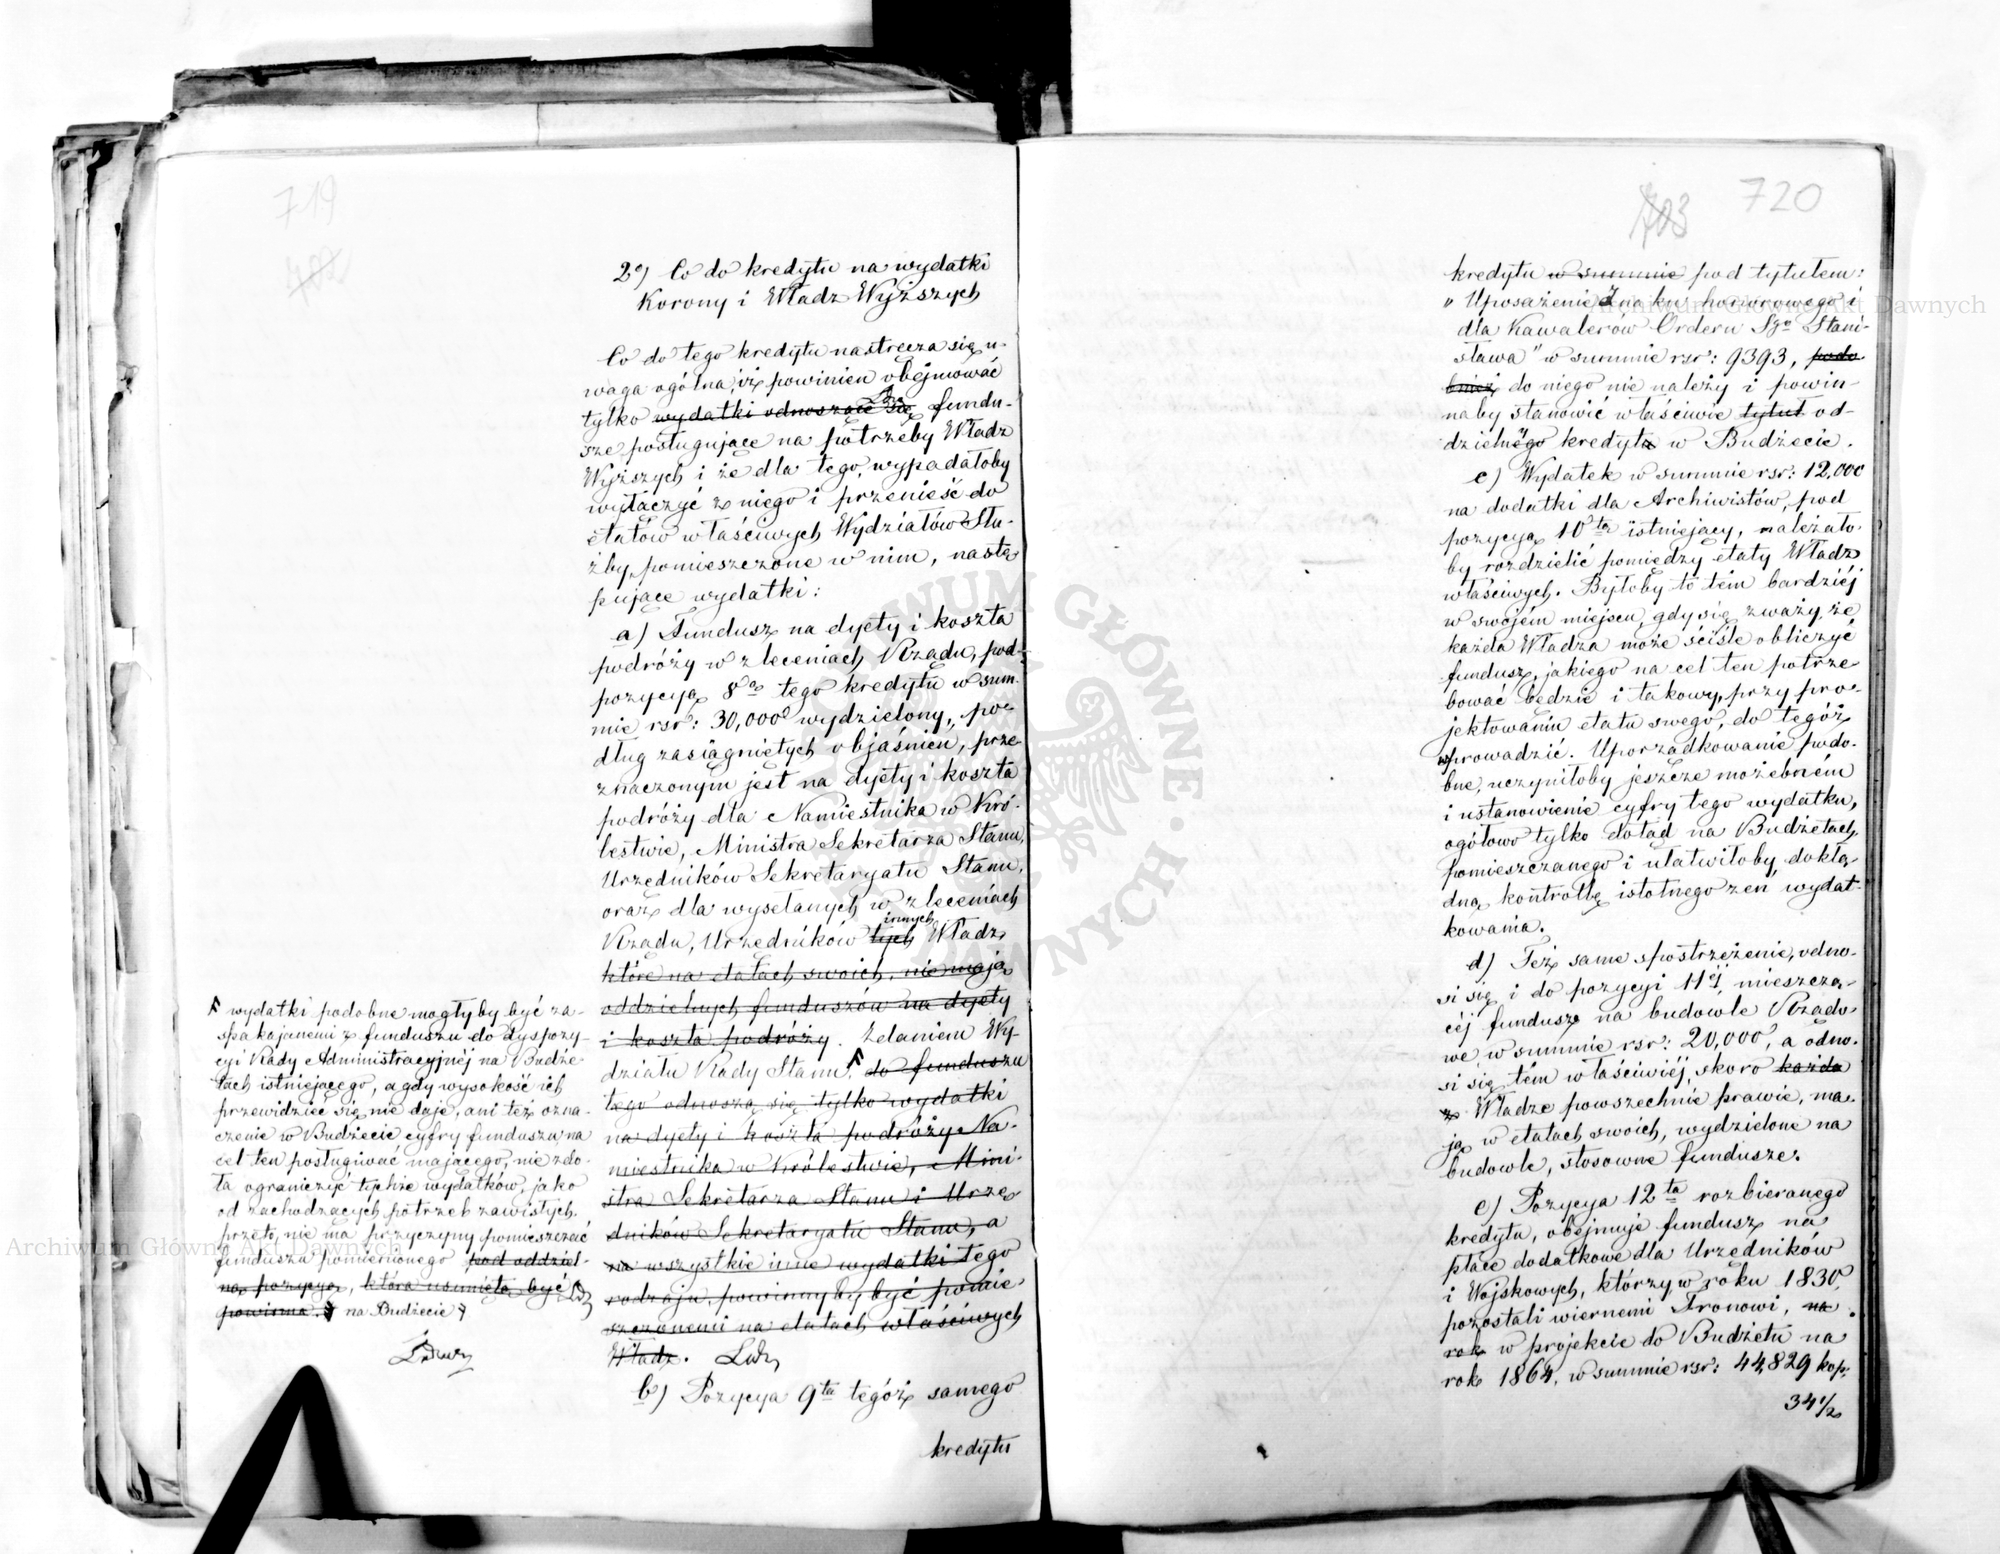 719
702
2o) Co do kredytu na wydatki
Korony i Władz Wyższych
Co do tego kredytu nastręcza się u-
waga ogólna, iż powinien obejmować
tylko wydatki odnoszące się fundu-
sze posługujące na potrzeby Władz
Wyższych i że dla tego, wypadałoby
wyłączyć z niego i przenieść do
etatów właściwych Wydziałów Słu-
żby, pomieszczone w nim, nastę-
pujące wydatki:
a) Fundusz na dyety i koszta
podróży w zleceniach Rządu, pod
pozycyą 8ą tego kredytu w sum-
mie rsr: 30,000 wydzielony, po-
dług zasiągniętych objaśnień, prze-
znaczonym jest na dyety i koszta
podróży dla Namiestnika w Kró-
lestwie, Ministra Sekretarza Stanu,
Urzędników Sekretaryatu Stanu,
oraz dla wysełanych w zleceniach
innych
Rządu, Urzędników tych Władz,
które na etatach swoich, nie mają
oddzielnych funduszów na dyety
i koszta podróży. Zdaniem Wy-
działu Rady Stanu, do funduszu
tego odnoszą się tylko wydatki
na dyety i koszta podróży Na-
miestnika w Królestwie, Mini-
stra Sekretarza Stanu i Urzę-
dników Sekretaryatu Stanu, a
na wszystkie inne wydatki tego
rodzaju, powinny by być pomie-
szczonemi na etatach właściwych
Władz.
b) Pozycya 9ta tegóż samego
kredytu
wydatki podobne mogłyby być za-
spakajanemi z funduszu do dyspozy-
cyi Rady Administracyjnéj na Budże-
tach istniejącego, a gdy wysokość ich
przewidzieć się nie daje, ani też ozna-
czenie w Budżecie cyfry funduszu na
cel ten posługiwać mającego, nie zdo-
ła ograniczyć tychże wydatków, jako
od zachodzących potrzeb zawisłych,
przeto, nie ma przyczyny pomieszczać
funduszu pomienionego pod oddziel-
ną pozycyą, która usunięta być
powinna. na Budżecie
703
720
kredytu w summie pod tytułem:
"Uposażenie Znaku honorowego i
dla Kawalerów Orderu Sgo Stani-
sława" w summie rsr: 9393, podo-
bnież do niego nie należy i powin-
naby stanowić właściwie tytuł od-
dzielnego kredytu w Budżecie.
c) Wydatek w summie rsr: 12,000
na dodatki dla Archiwistów, pod
pozycyą 10tą istniejący, należało-
by rozdzielić pomiędzy etaty Władz
właściwych. Byłoby to tém bardziéj
w swojém miejscu, gdy się zważy, że
każda Władza może ściśle obliczyć
fundusz, jakiego na cel ten potrze-
bować będzie i takowy, przy pro-
jektowaniu etatu swego, do tegóż
wprowadzić. Uporządkowanie podo-
bne, uczyniłoby jeszcze możebném
i ustanowienie cyfry tego wydatku,
ogółowo tylko dotąd na Budżetach,
pomieszczanego i ułatwiłoby dokła-
dną kontrollę istotnego zeń wydat-
kowania.
d) Też same spostrzeżenie, odno-
si się i do pozycyi 11éj, mieszczą-
céj fundusz na budowle Rządo-
we w summie rsr: 20,000, a odno-
si się tém właściwiéj, skoro każda
z Władze powszechnie prawie, ma-
ją w etatach swoich, wydzielone na
budowle, stosowne fundusze.
e) Pozycya 12ta rozbieranego
kredytu, obejmuje fundusz na
płace dodatkowe dla Urzędników
i Wojskowych, którzy w roku 1830,
pozostali wiernemi Tronowi, na
rok w projekcie do Budżetu na
rok 1864, w summie rsr: 44,829 kop.
34 1/2
Archiwum Główne Akt Dawnych
Archiwum Główne Akt Dawnych
ARCHIWUM GŁÓWNE AKT DAWNYCH